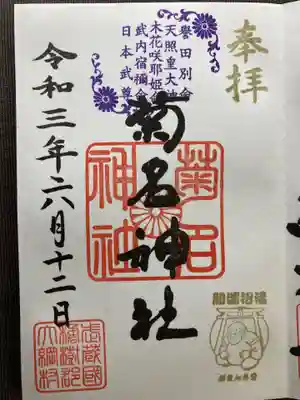 奉拝
誉田別命
天照皇大神
木花咲耶姫命
武内宿禰命
日本武尊
菊名神社
菊名
神社
令和三年六月十二日
武蔵國
橘樹郡
大綱村